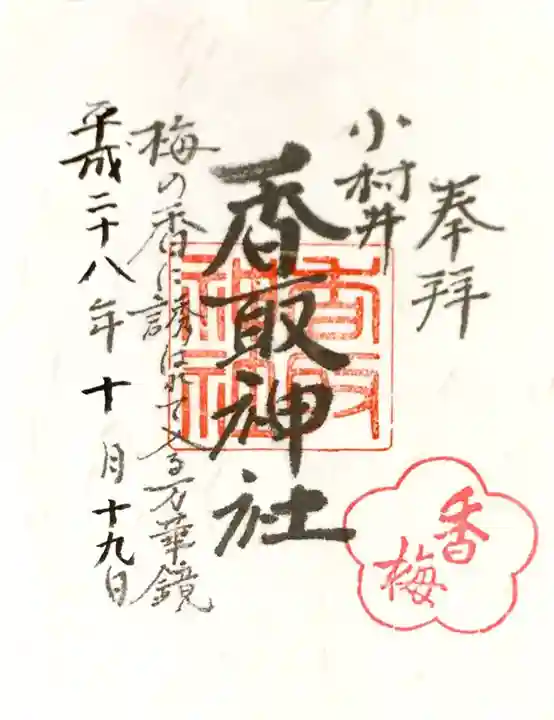 奉拝
小村井
香取神社
梅の香に誘はれて入る万華鏡
平成二十八年十月十九日
香取神社
香梅